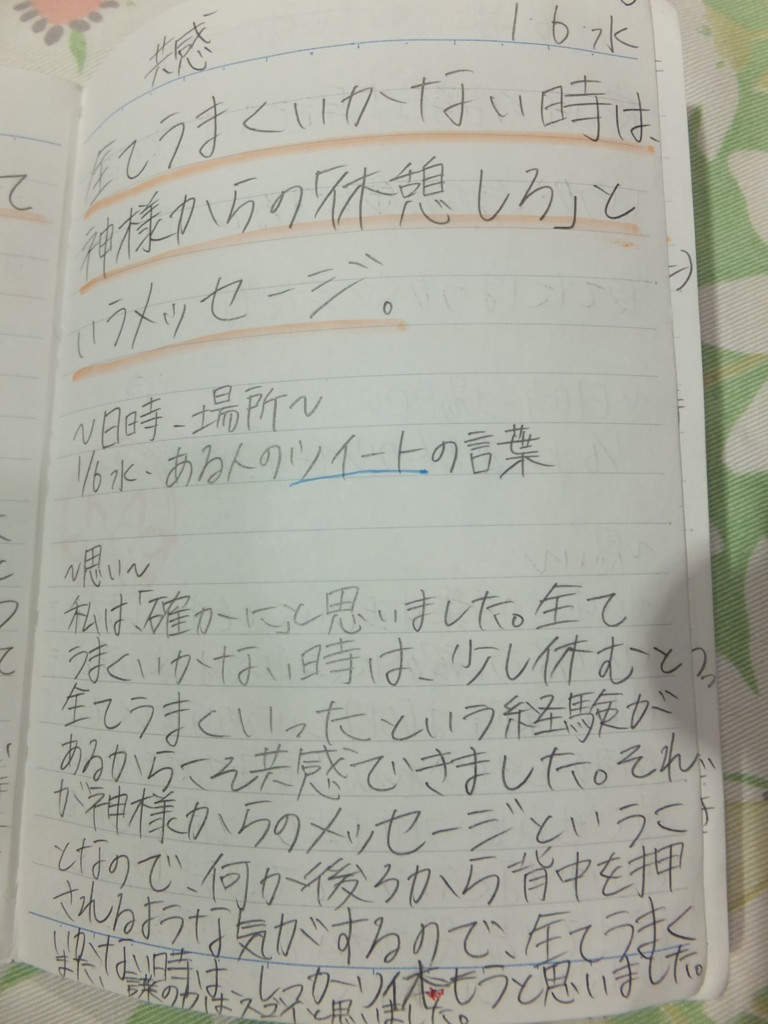 共感 1.6.水
全てうまくいかない時は、
神様からの「休憩しろ」と
いうメッセージ。
〜日時-場所〜
1/6水・ある人のツイートの言葉
〜思い〜
私は、「確かに」と思いました。全て
うまくいかない時は、少し休むと、
全てうまくいったという経験が
あるからこそ共感できました。それ
が神様からのメッセージというこ
となので、何か後ろから背中を押
されるような気がするので、全てうまく
いかない時は、しっかり休もうと思いました。
また、言葉の力はスゴイと思いました。
て